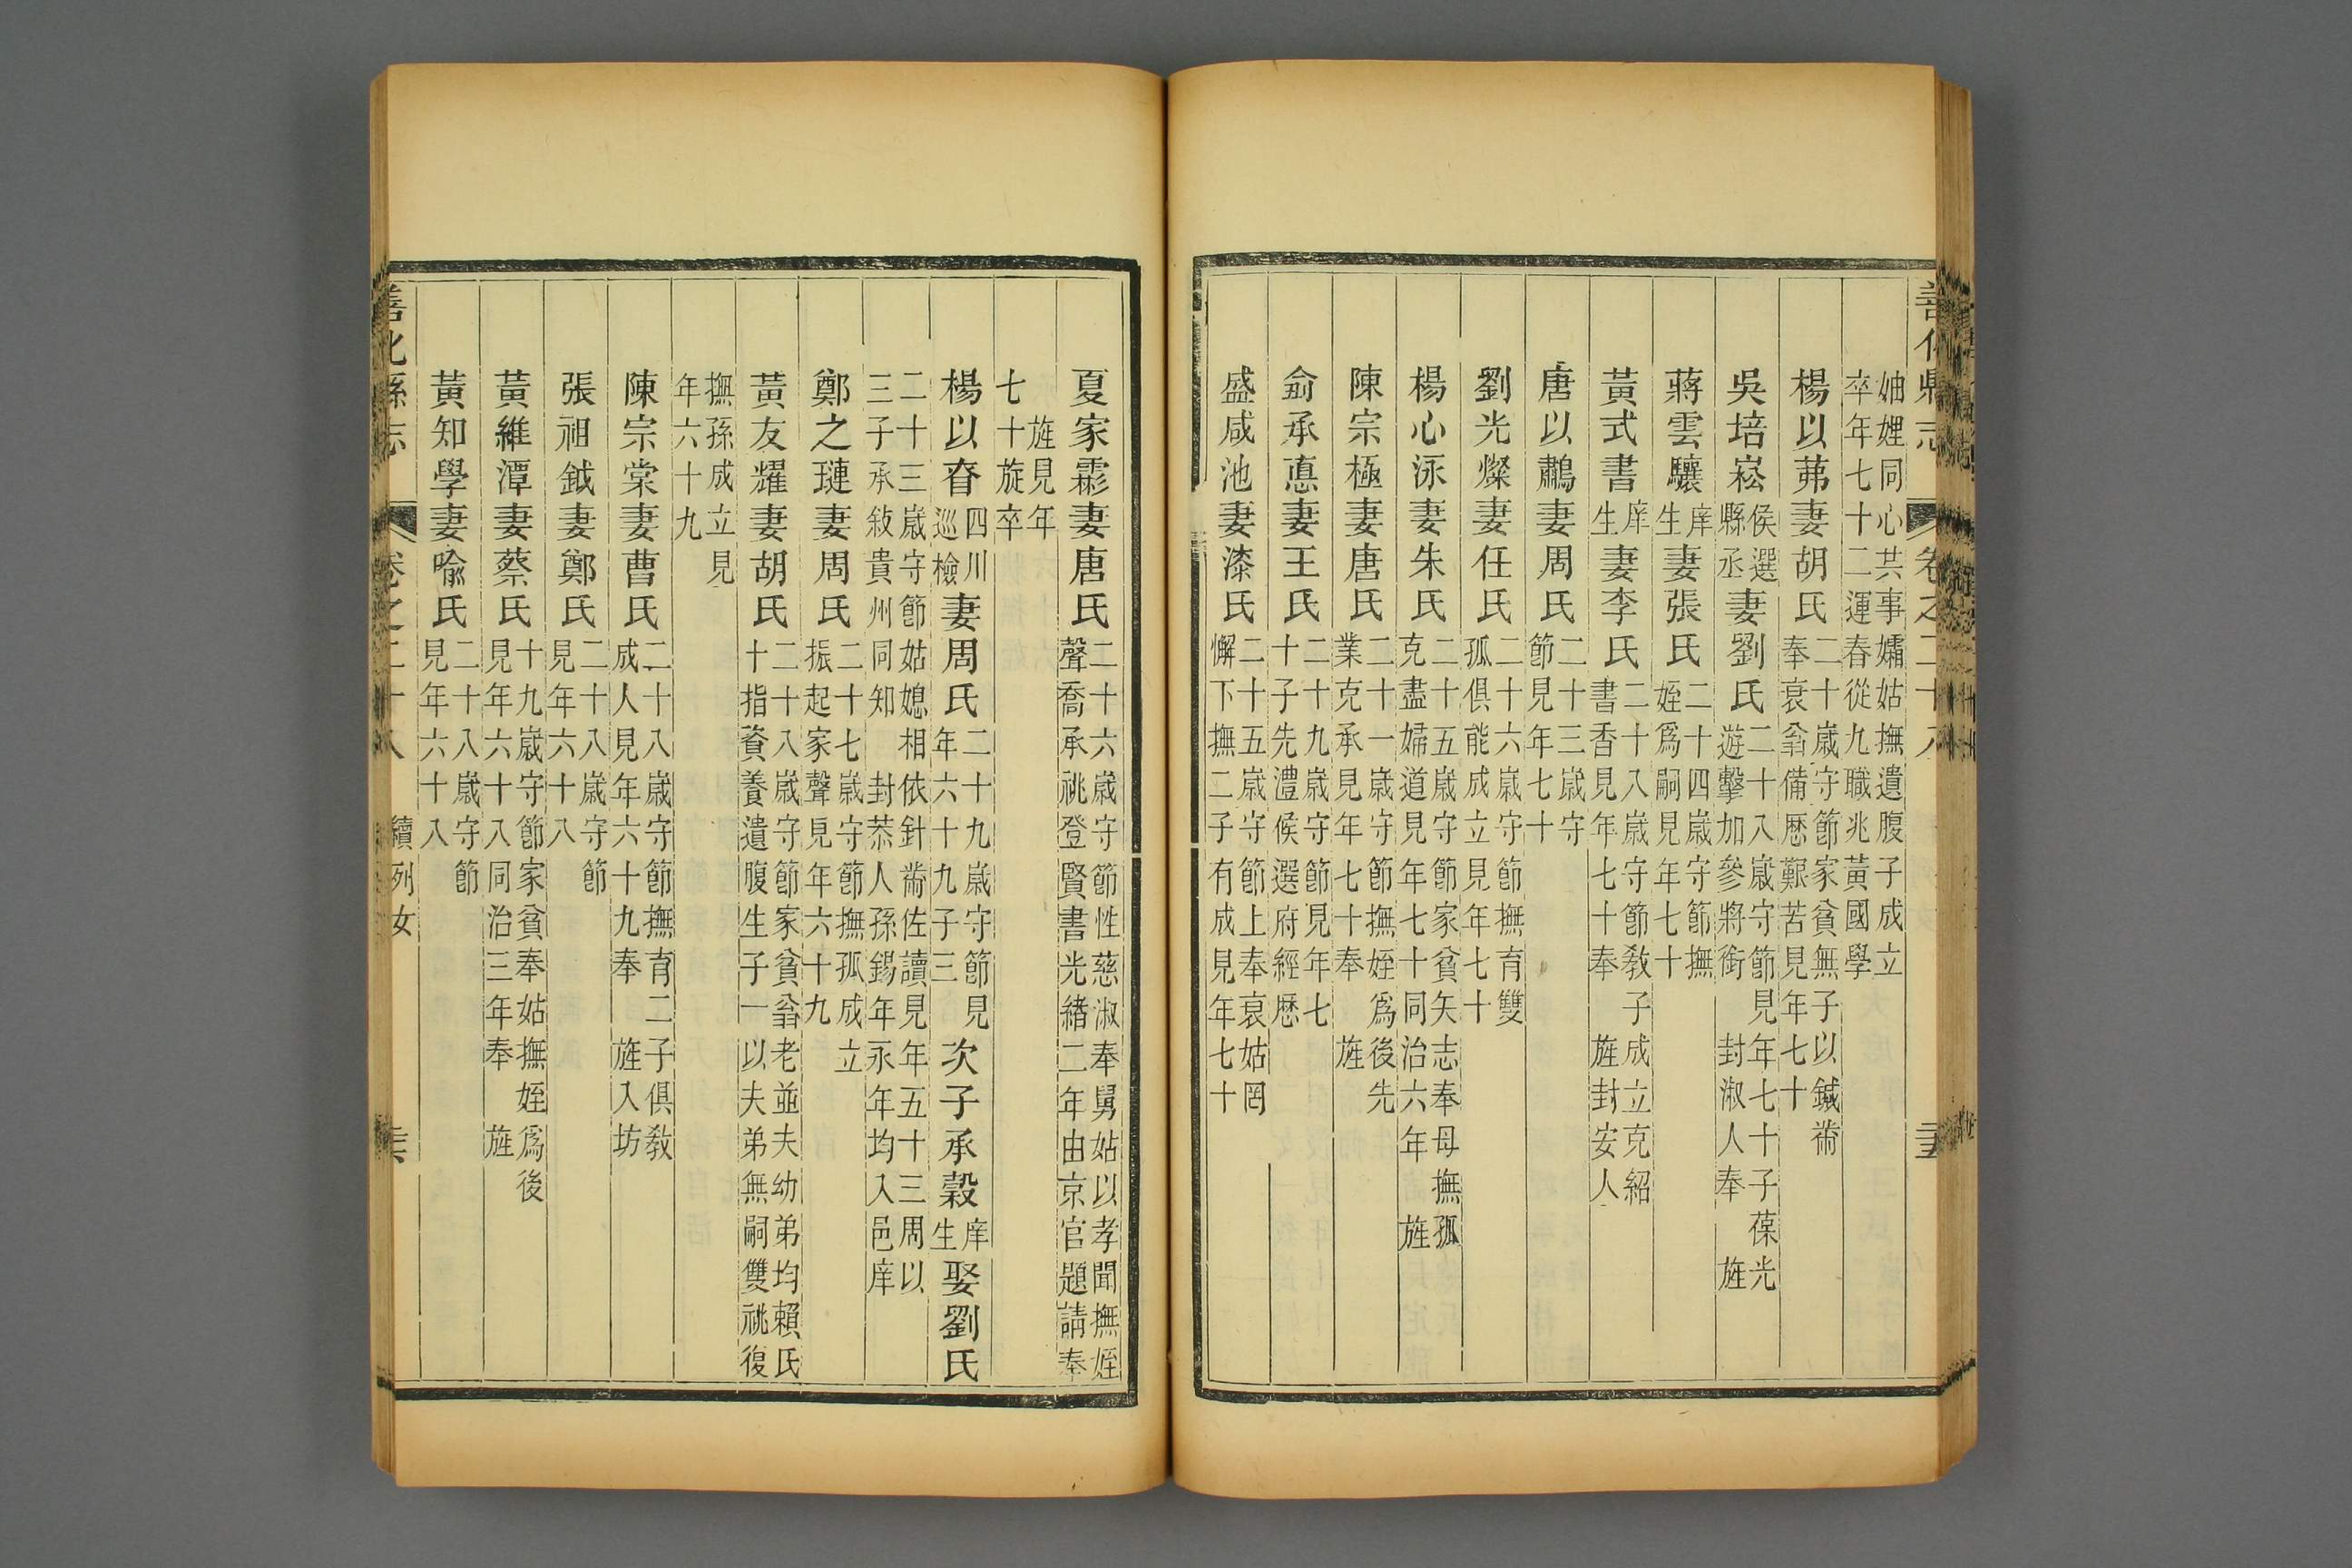 善化縣志
卷之二十八
妯娌同心共事孀姑撫遺腹子成立
卒年七十二運春從九職兆黃國學
楊以茀妻胡氏二十歲守節家貧無子以鍼黹
奉衰翁備歷艱苦見年七十
吳培崧候選縣丞妻劉氏二十八歲守節見年七十子葆光
遊擊加參將銜 封淑人奉 旌
蔣雲驤庠生妻張氏二十四歲守節撫
姪爲嗣見年七十
黃式書庠生妻李氏二十八歲守節敎子成立克紹
書香見年七十奉 旌封安人
唐以鷫妻周氏二十三歲守
節見年七十
劉光燦妻任氏二十六歲守節撫育雙
孤俱能成立見年七十
楊心泳妻朱氏二十五歲守節家貧矢志奉母撫孤
克盡婦道見年七十同治六年 旌
陳宗極妻唐氏二十一歲守節撫姪爲後先
業克承見年七十奉 旌
俞承悳妻王氏二十九歲守節見年七
十子先澧候選府經歷
盛咸池妻漆氏二十五歲守節上奉哀姑罔
懈下撫二子有成見年七十
夏家霦妻唐氏二十六歲守節性慈淑奉舅姑以孝聞撫姪
聲喬承祧登賢書光緒二年由京官題請奉
旌見年
七十旋卒
楊以眘四川巡檢妻周氏二十九歲守節見
年六十九子三次子承穀庠生娶劉氏
二十三歲守節姑媳相依針黹佐讀見年五十三周以
三子承敘貴州同知 封恭人孫錫年永年均入邑庠
鄭之璉妻周氏二十七歲守節撫孤成立
振起家聲見年六十九
黃友耀妻胡氏二十八歲守節家貧翁老並夫幼弟均賴氏
十指資養遺腹生子一以夫弟無嗣雙祧復
撫孫成立見
年六十九
陳宗棠妻曹氏二十八歲守節撫育二子俱敎
成人見年六十九奉 旌入坊
張祖鉞妻鄭氏二十八歲守節
見年六十八
黃維潭妻蔡氏十九歲守節家貧奉姑撫姪爲後
見年六十八同治三年奉 旌
黃知學妻喩氏二十八歲守節
見年六十八
善化縣志
卷之二十八
續列女